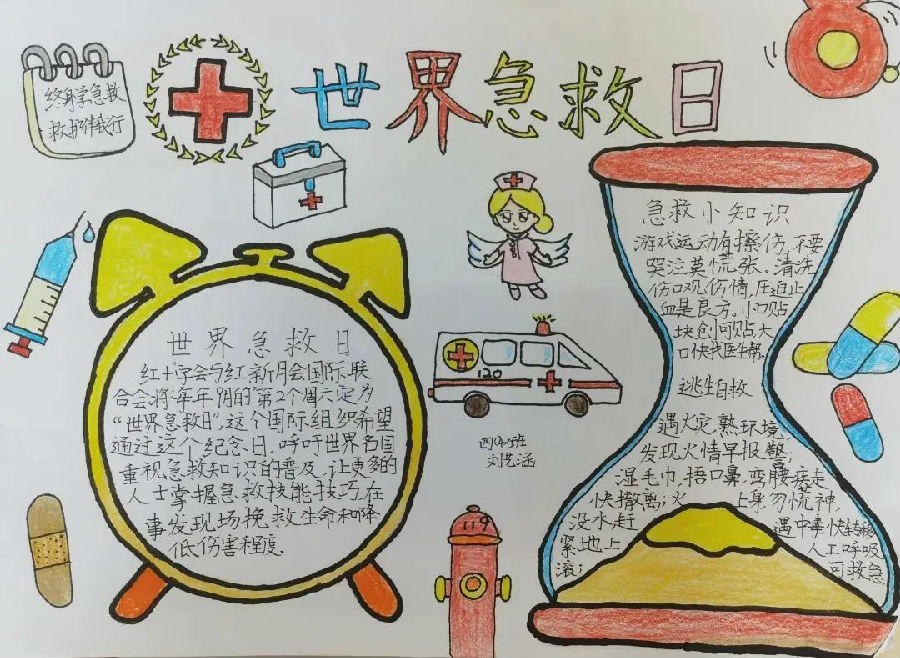 终身学急救
救护伴我行
世界急救日
世界急救日
红十字会与红新月会国际联
合会将每年9月的第2个周六定为
“世界急救日”,这个国际组织希望
通过这个纪念日,呼吁世界各国
重视急救知识的普及,让更多的
人士掌握急救技能技巧,在
事发现场挽救生命和降
低伤害程度.
120
四(4)班
119
急救小知识
游戏运动有擦伤,不要
哭泣莫慌张。清洗
伤口观伤情,压迫止
血是良方。小口贴
块创可贴大
口快找医生帮.
逃生自救
遇火定熟环境;
发现火情早报警;
湿毛巾,捂口鼻,弯腰逶走
快撤离;火 上身勿慌神,
没水赶
紧地上
滚;
遇中毒快转移
人工呼吸
可救急